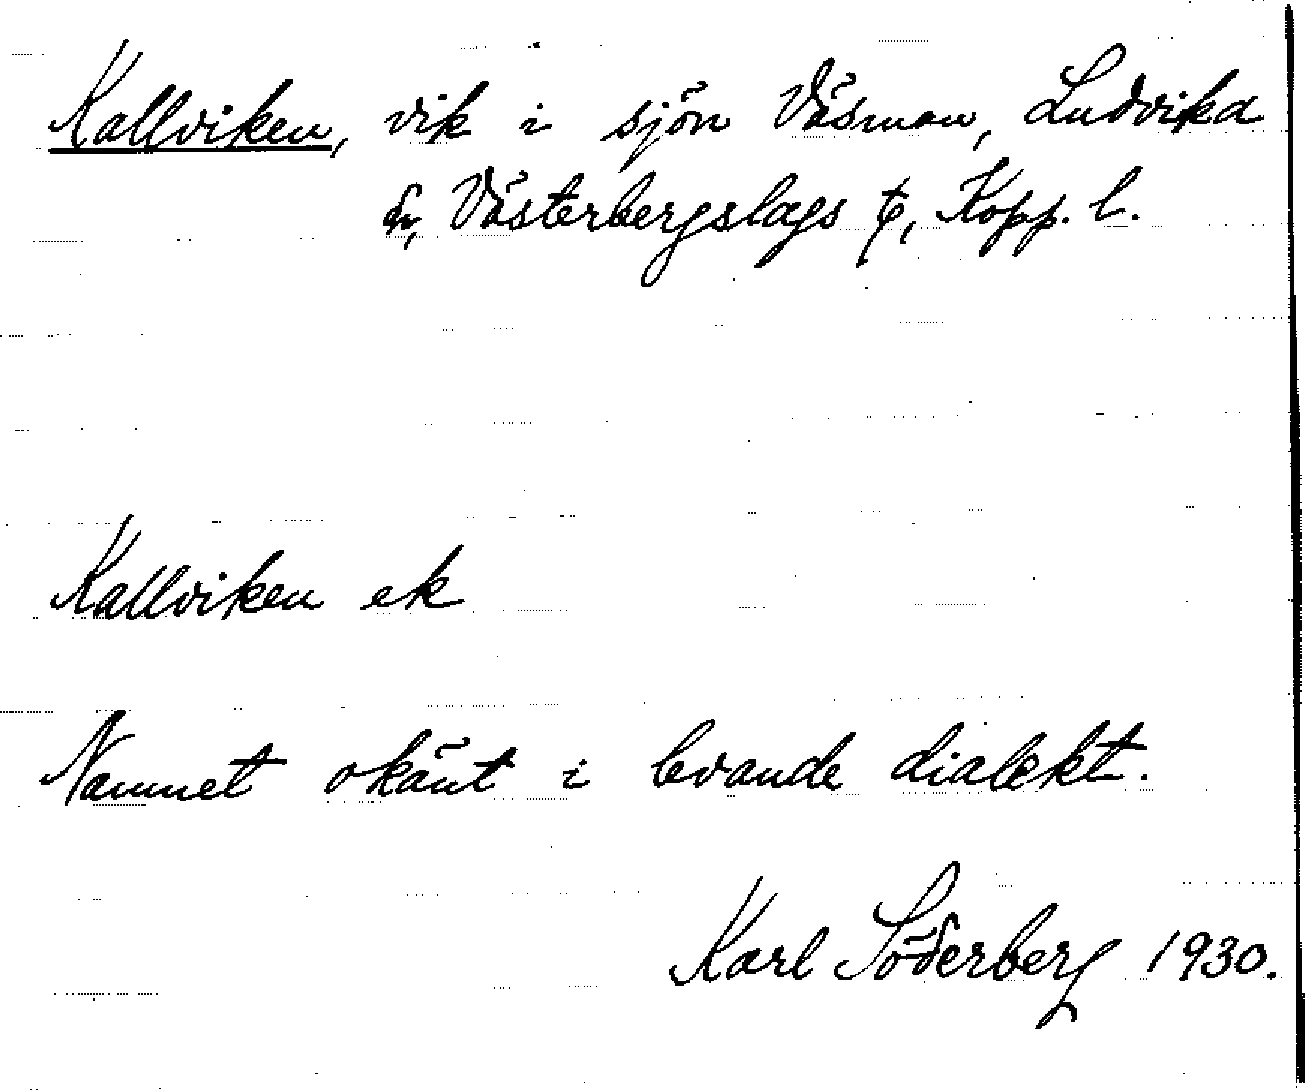 Kallviken, vik i sjön Väsman, Ludvika
sn, Västerbergslags t, Kopp. l.
Kallviken ek
Namnet okänt i levande dialekt.
Karl Söderberg 1930.